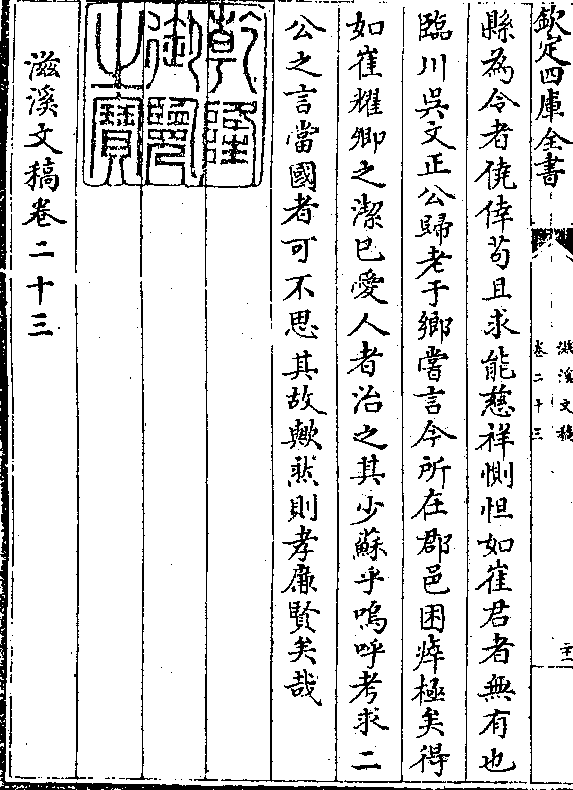 欽定四庫全書
滋溪文稿
卷二十三
縣為令者僥倖苟且求能慈祥惻怛如崔君者無有也
臨川吳文正公歸老于鄉嘗言今所在郡邑困瘁極矣得
如崔耀卿之潔已愛人者治之其少蘇乎嗚呼考求二
公之言當國者可不思其故歟然則孝廉賢矣哉
乾隆
御覽
之寶
滋溪文稿卷二十三